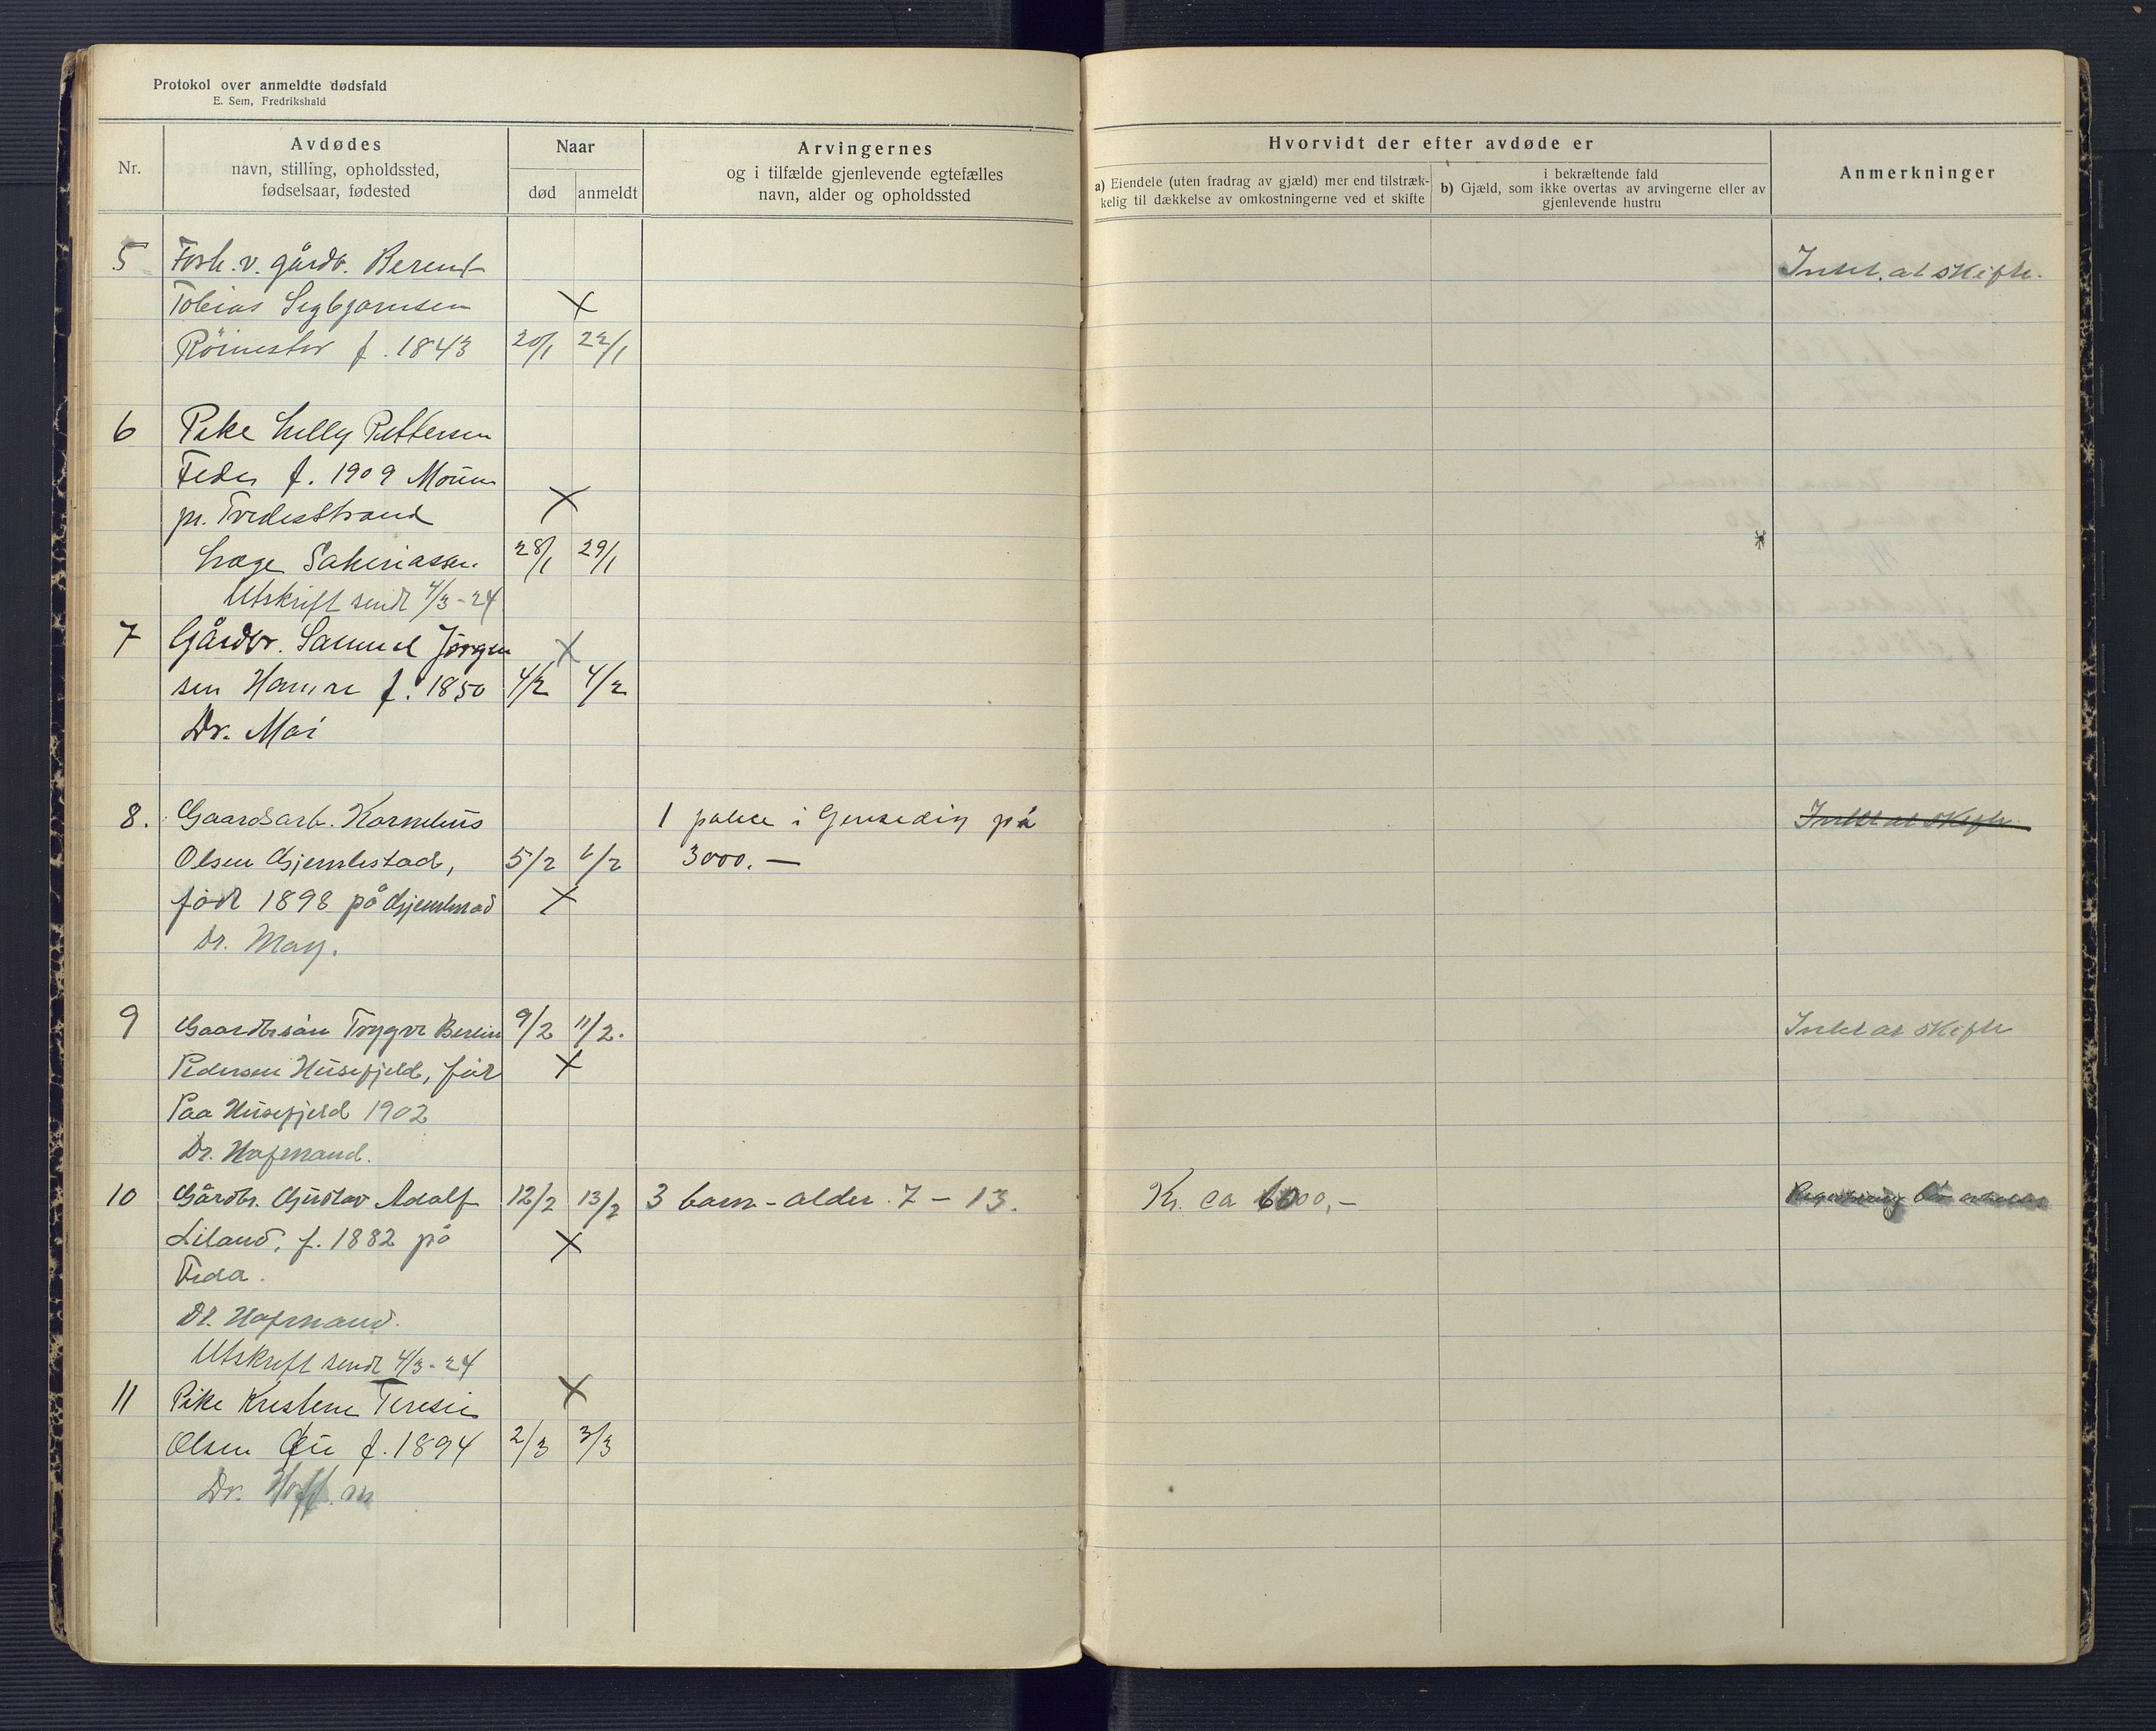 Protokol over anmeldte dødsfald
E. Sem, Fredrikshald
Nr.
Avdødes
navn, stilling, opholdssted,
fødselsaar, fødested
Naar
død
anmeldt
Arvingernes
og i tilfælde gjenlevende egtefælles
navn, alder og opholdssted
Hvorvidt der efter avdøde er
a) Eiendele (uten fradrag av gjæld) mer end tilstræk-
kelig til dækkelse av omkostningerne ved et skifte
i bekræftende fald
b) Gjæld, som ikke overtas av arvingerne eller av
gjenlevende hustru
Anmerkninger
5 Forh. v. gårdb. Berent Intet at skifte.
Tobias Sigbjørnsen X
f. 1843 20/1 22/1
6 Pike Lilly Pettersen
Feda f. 1909
pr. Tvedestrand X
Læge Sakariassen. 28/1 29/1
Utskrift sendt 4/3-24
7 Gårdbr. Samuel Jørgen X
sen Hamre f. 1850 4/2 4/2
Dr. Mai
8. Gaardsarb. Kornelius 1 police i Gjensidig på Intet at skifte
Olsen Gjemlestad, 5/2 6/2 3000.—
født 1898 på Gjemlestad X
Dr. May.
9 Gaardbrsøn Trygve 9/2 11/2. Intet at skifte
Pedersen Husefjeld, født X
Paa Husefjeld 1902
Dr. Hafmand.
10 Gårdbr. Gustav Adolf 12/2 13/2 3 barn - alder. 7 - 13. Kr. ca 6000,-
Liland, f. 1882 på X
Feda.
Dr. Hafmand.
Utskrift sendt 4/3-24
11 Pike Kristine Teresie X
Olsen f. 1894 2/3 3/3
Dr. Hoff.m